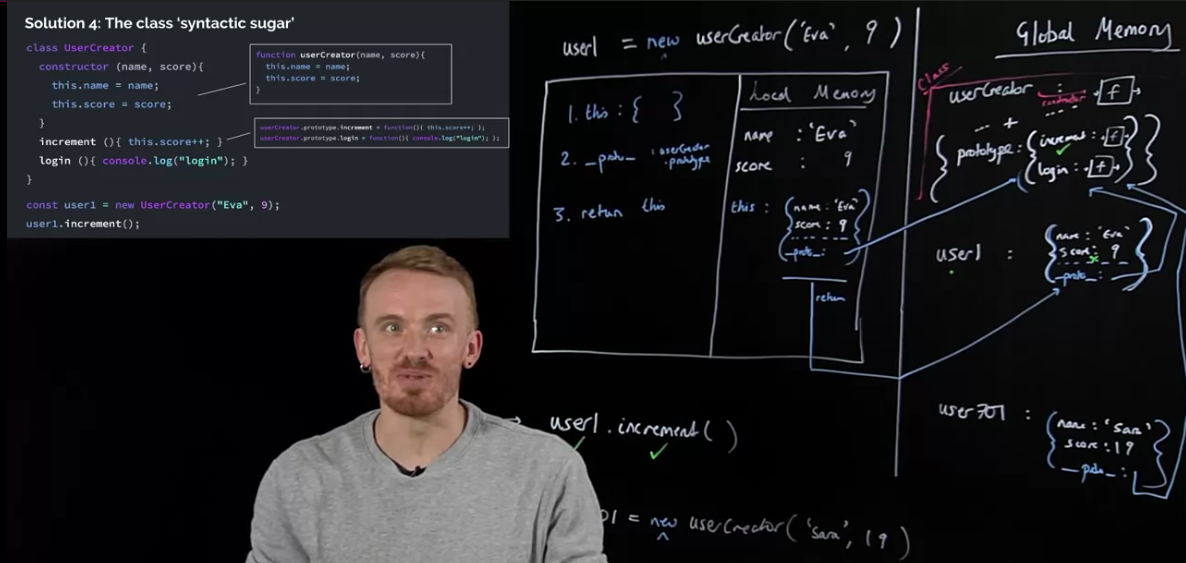 Solution 4: The class ‘syntactic sugar’
class UserCreator {
constructor (name, score){
this.name = name;
this.score = score;
}
increment (){ this.score++; }
login (){ console.log("login"); }
}
const user1 = new UserCreator("Eva", 9);
user1.increment();
function userCreator(name, score){
this.name = name;
this.score = score;
}
userCreator.prototype.increment = function(){ this.score++; };
userCreator.prototype.login = function(){ console.log("login"); };
user1 = new userCreator('Eva', 9)
1. this : { }
2. __proto__ : userCreator.prototype
3. return this
Local Memory
name : 'Eva'
score : 9
this : { name : 'Eva'
score : 9
__proto__ : }
return
user1.increment( )
01 = new userCreator('Sara', 19)
Global Memory
class
userCreator : f
constructor
+
prototype : { increment : f
login : f }
user1 : { name : 'Eva'
score : 9
__proto__ : }
user701 : { name : 'Sara'
score : 19
__proto__ : }